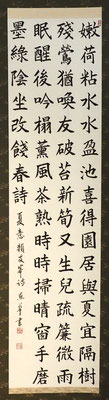 嫩荷粘水水盈池喜得園居與夏宜隔樹
殘鶯猶喚友破苔新筍又生兒疏簾微雨
眠醒後吟榻薰風茶熟時時掃晴窗手磨
墨綠陰坐改餞春詩
夏意 賴友竿詩